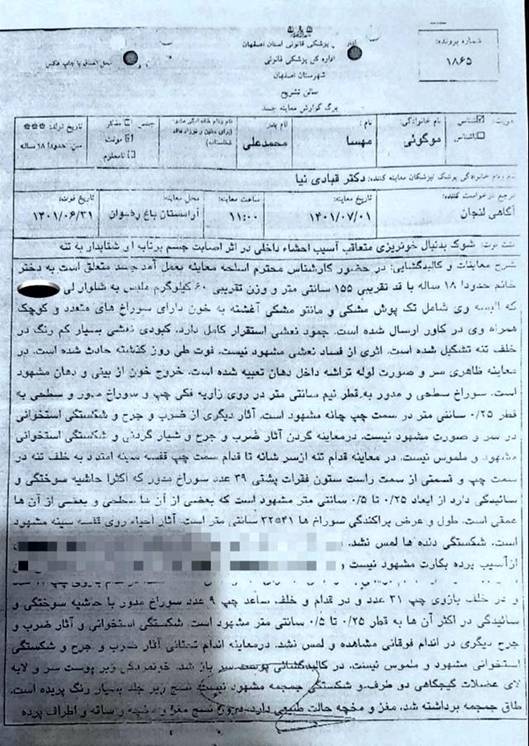 شماره پرونده:
۱۸۶۵
پزشکی قانونی استان اصفهان
اداره کل پزشکی قانونی
شهرستان اصفهان
سالن تشریح
برگ گزارش معاینه جسد
محل الصاق یا چاپ عکس
هویت: شناس ناشناس
نام خانوادگی: موگوئی
نام: مهسا
نام پدر: محمدعلی
جنس: مذکر مونث نامعلوم
تاریخ تولد: ***
سن: حدودا ۱۸ ساله
نام و نام خانوادگی پزشک/پزشکان معاینه کننده: دکتر قبادی نیا
مرجع درخواست کننده: آگاهی لنجان
تاریخ معاینه: ۱۴۰۱/۰۷/۰۱
ساعت معاینه: ۱۱:۰۰
محل معاینه: آرامستان باغ رضوان
تاریخ فوت: ۱۴۰۱/۰۶/۳۱
علت فوت: شوک بدنبال خونریزی متعاقب آسیب احشاء داخلی در اثر اصابت جسم پرتابه ای شتابدار به تنه
شرح معاینات و کالبدگشایی: در حضور کارشناس محترم اسلحه معاینه بعمل آمد جسد متعلق است به دختر
خانم حدودا ۱۸ ساله با قد تقریبی ۱۵۵ سانتی متر و وزن تقریبی ۶۰ کیلوگرم ملبس به شلوار لی
که البسه وی شامل تک پوش مشکی و مانتو مشکی آغشته به خون دارای سوراخ های متعدد و کوچک
همراه وی در کاور ارسال شده است. جمود نعشی استقرار کامل دارد. کبودی نعشی بسیار کم رنگ در
خلف تنه تشکیل شده است. اثری از فساد نعشی مشهود نیست. فوت طی روز گذشته حادث شده است. در
معاینه ظاهری سر و صورت لوله تراشه داخل دهان تعبیه شده است. خروج خون از بینی و دهان مشهود
است. سوراخ سطحی و مدور به قطر نیم سانتی متر در روی زاویه فکی چپ و سوراخ مدور و سطحی به
قطر ۰/۲۵ سانتی متر در سمت چپ چانه مشهود است. آثار دیگری از ضرب و جرح و شکستگی استخوانی
در سر و صورت مشهود نیست. درمعاینه گردن آثار ضرب و جرح و شیار گردنی و شکستگی استخوانی
مشهود و ملموس نیست. در معاینه قدام تنه ازسر شانه تا قدام سمت چپ قفسه سینه امتداد به خلف تنه در
سمت چپ و قسمتی از سمت راست ستون فقرات پشتی ۳۹ عدد سوراخ مدور که اکثرا حاشیه سوختگی و
سائیدگی دارد از ابعاد ۰/۲۵ تا ۰/۵ سانتی متر مشهود است که بعضی از آن ها سطحی و بعضی از آن ها
عمقی است. طول و عرض پراکندگی سوراخ ها ۴۱*۳۲ سانتی متر است. آثار احیاء روی قفسه سینه مشهود
است. شکستگی دنده ها لمس نشد.
ازآسیب پرده بکارت مشهود نیست و
و در خلف بازوی چپ ۳۱ عدد و در قدام و خلف ساعد چپ ۹ عدد سوراخ مدور با حاشیه سوختگی و
سائیدگی در اکثر آن ها به قطر ۰/۲۵ تا ۰/۵ سانتی متر مشهود است. شکستگی استخوانی و آثار ضرب و
جرح دیگری در اندام فوقانی مشاهده و لمس نشد. درمعاینه اندام تحتانی آثار ضرب و جرح و شکستگی
استخوانی مشهود و ملموس نیست. در کالبدگشائی پوست سر باز شد. خونمردگی زیر پوست سر و لابه
لای عضلات گیجگاهی دو طرف و شکستگی جمجمه مشهود نیست نسج زیر جلد بسیار رنگ پریده است.
طاق جمجمه برداشته شد. مغز و مخچه حالت طبیعی دارد. درون نسج مغز و مخچه و ساقه و اطراف پرده